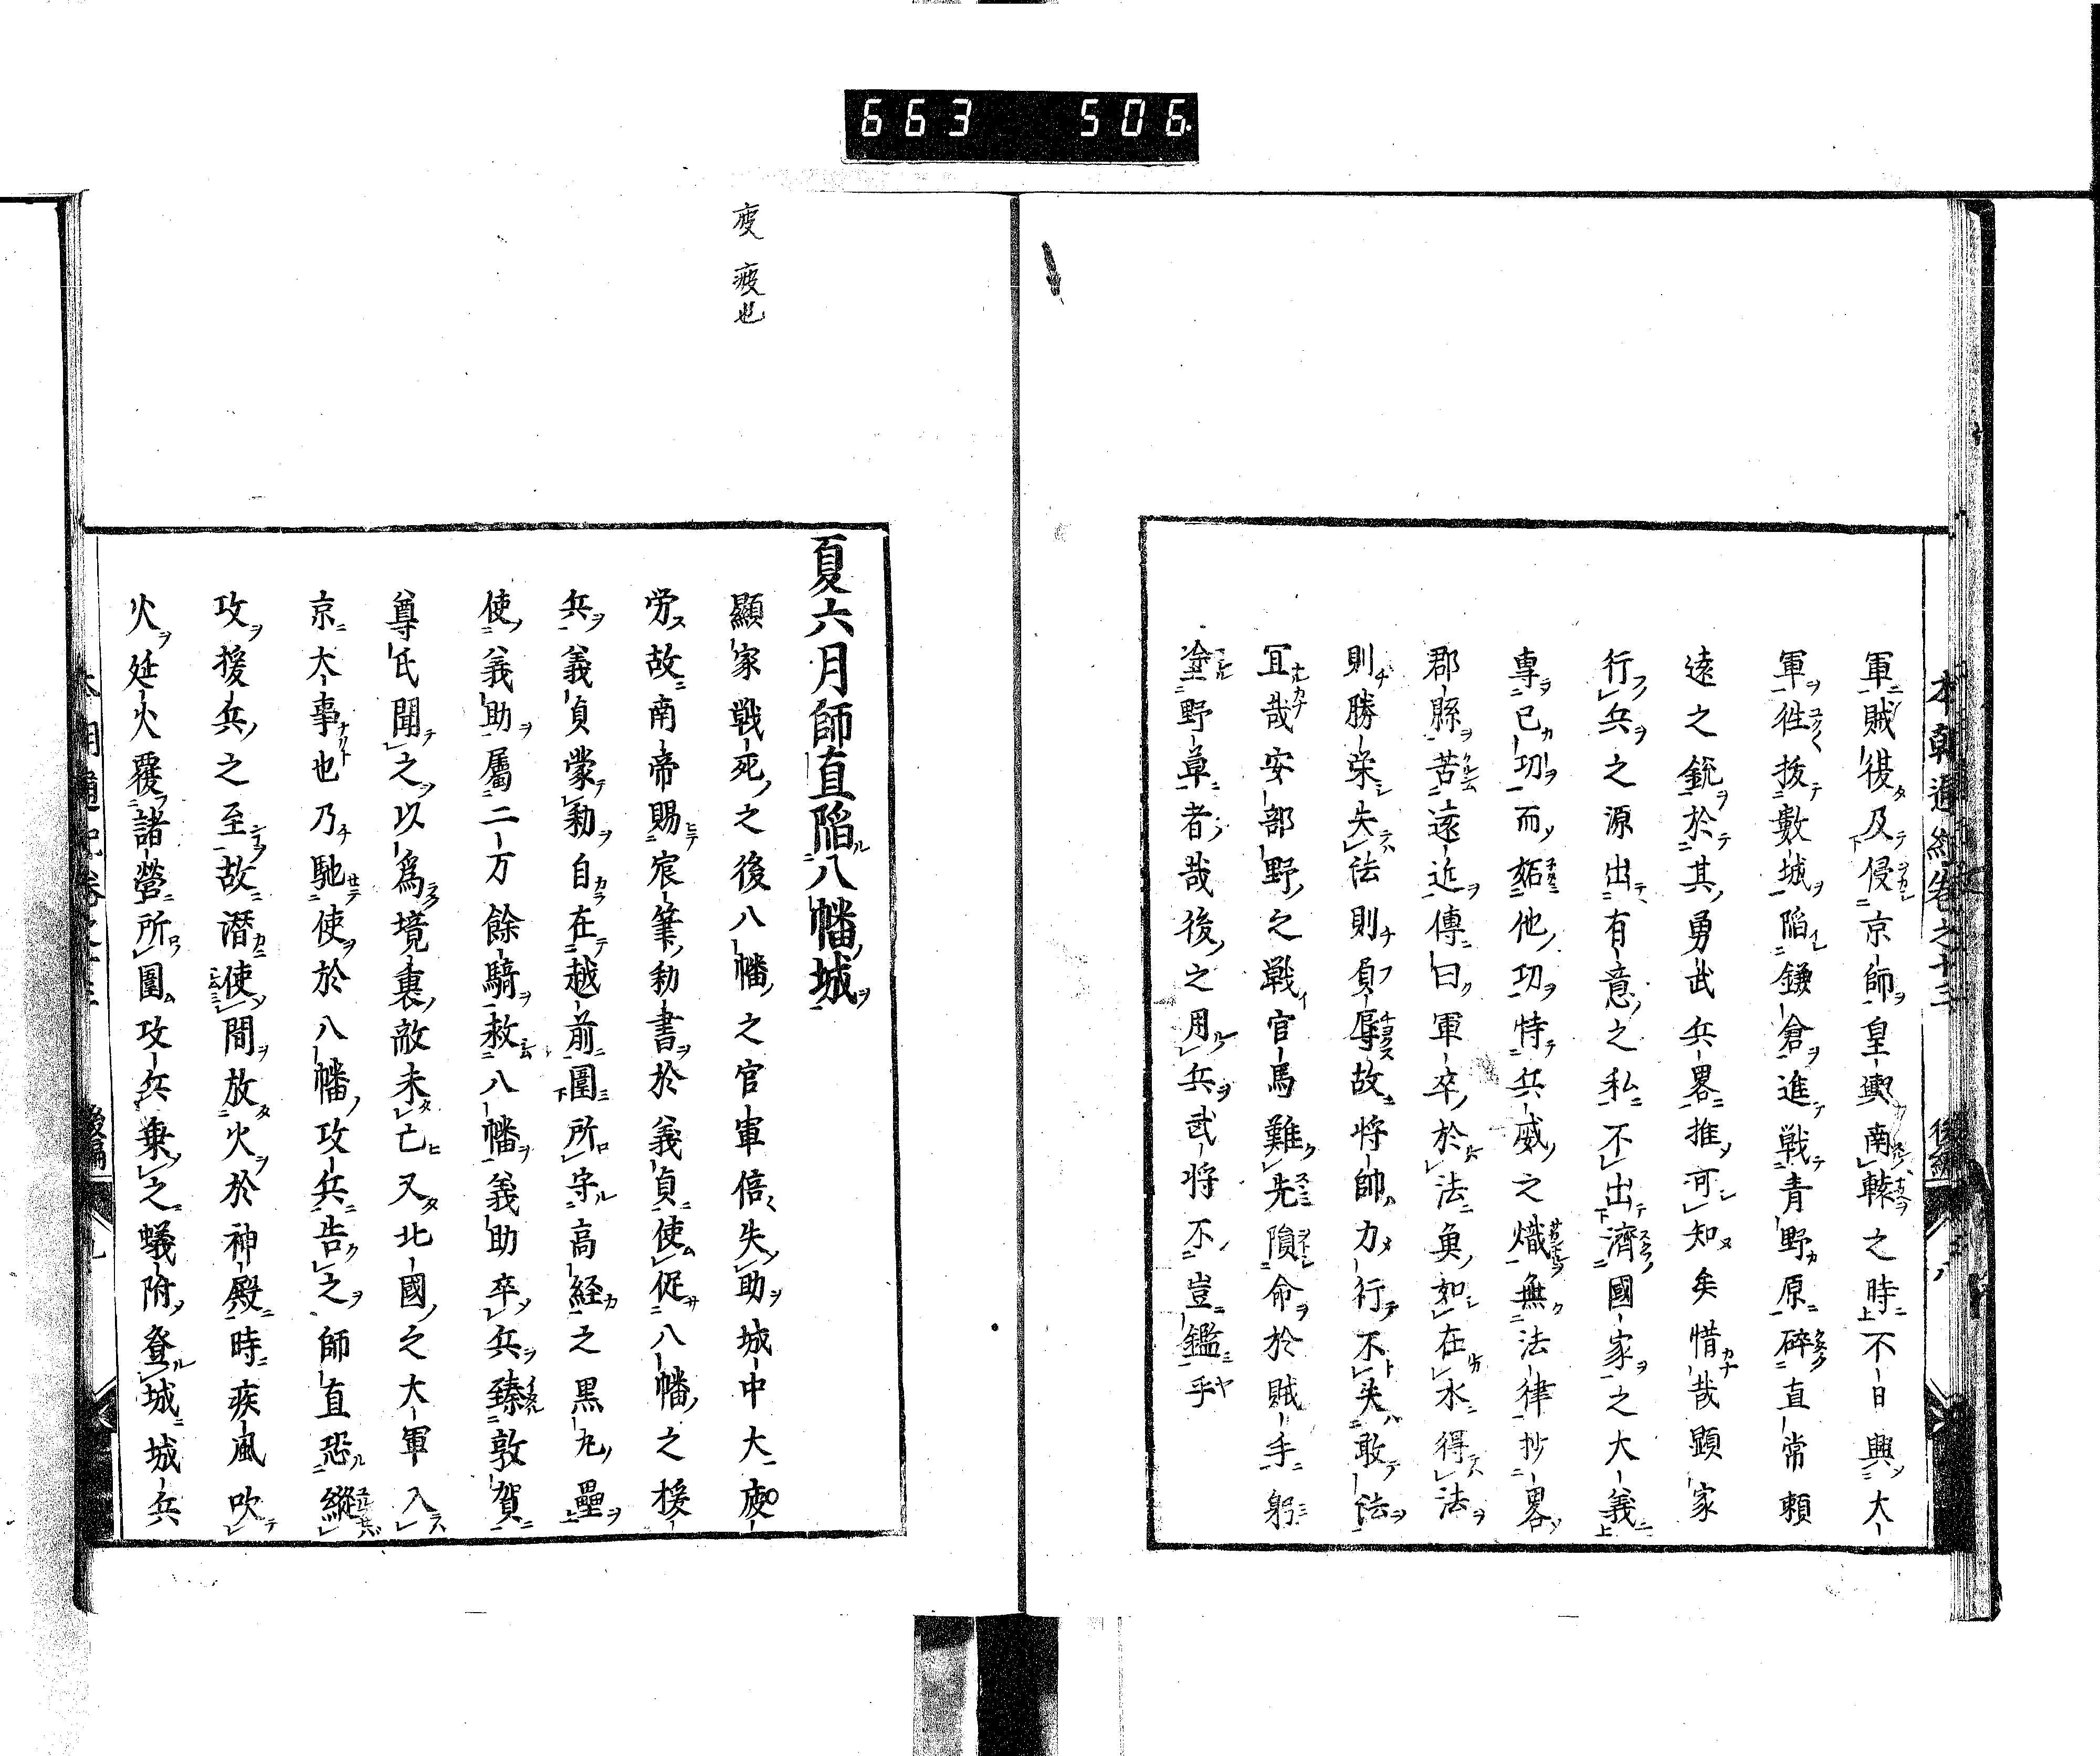 663 506
本朝通紀卷之十三 後編 八
軍賊復及侵京師皇輿南轅之時不日興大
軍徃拔數城陷鎌倉進戦青野原碎直常頼
遠之銳於其勇武兵畧推可知矣惜哉顕家
行兵之源出有意之私不出濟國家之大義
專己功而妬他功恃兵威之熾無法律抄畧
郡縣苦遠近傳曰軍卒於法魚如在水得法
則勝榮失法則負辱故将帥力行不失敢法
冝哉安部野之戦官馬難先隕命於賊手躬
塗野草者哉後之用兵武将不豈鑑乎
㾕 疲也
夏六月師直陷八幡城
顯家戦死之後八幡之官軍倍失助城中大㾕
労故南帝賜宸筆勅書於義貞使促八幡之援
兵義貞蒙勅自在越前圍所守高経之黒丸壘
使義助屬二万餘騎救八幡義助卒兵臻敦賀
尊氏聞之以爲境裏敵未亡又北國之大軍入
京大事也乃馳使於八幡攻兵告之師直恐縱
攻援兵之至故潛使間放火於神殿時疾風吹
火延火覆諸營所圍攻兵乗之蟻附登城城兵
後編 九